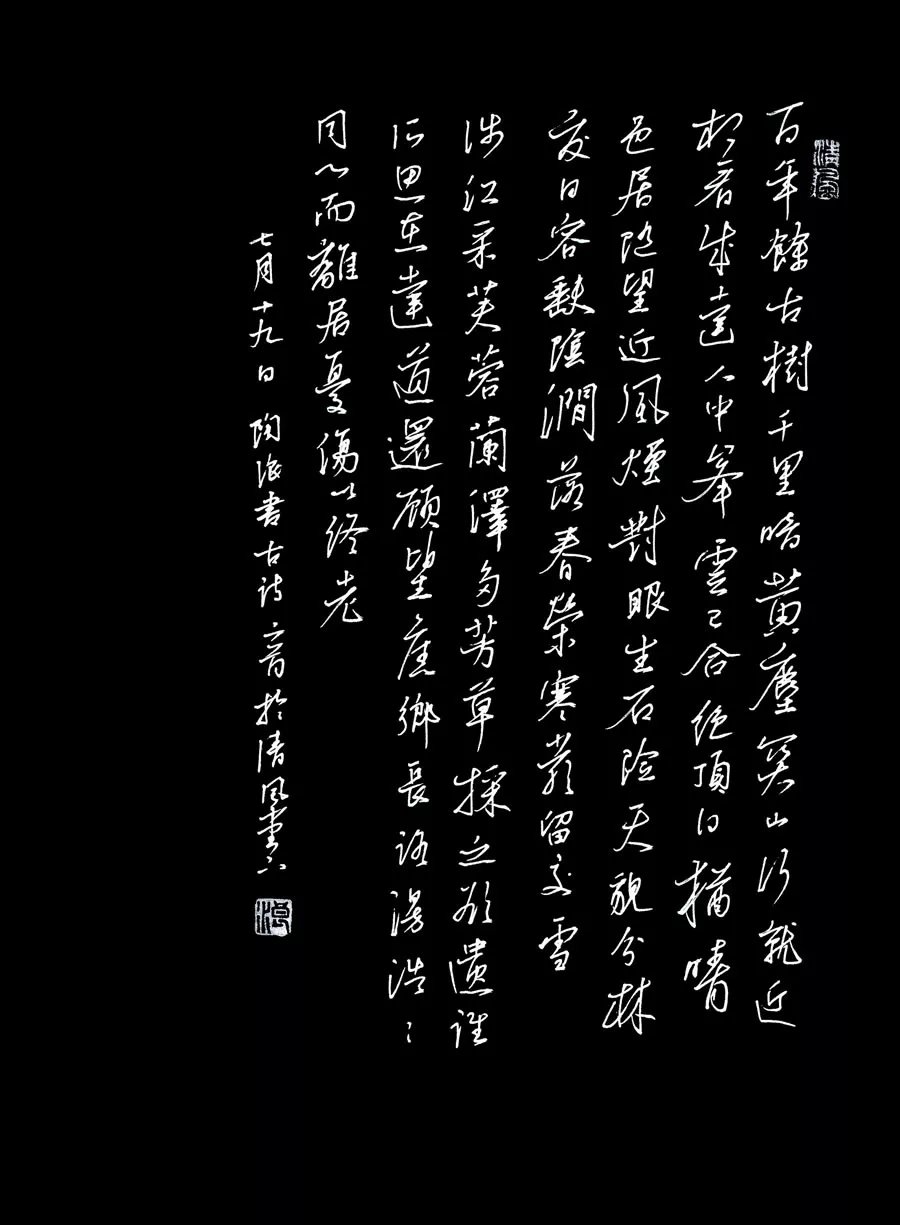 清風
百年餘古樹千里暗黃塵関山行就近
相看成遠人中峯雲已合絕頂日猶晴
邑居隨望近風煙對眼生石險天貌分林
交日容缺陰澗落春榮寒巖留夏雪
涉江采芙蓉蘭澤多芳草採之欲遺誰
所思在遠道還顧望舊鄉長路漫浩〻
同心而離居憂傷以終老
七月十九日陶書古詩三首於清風堂下